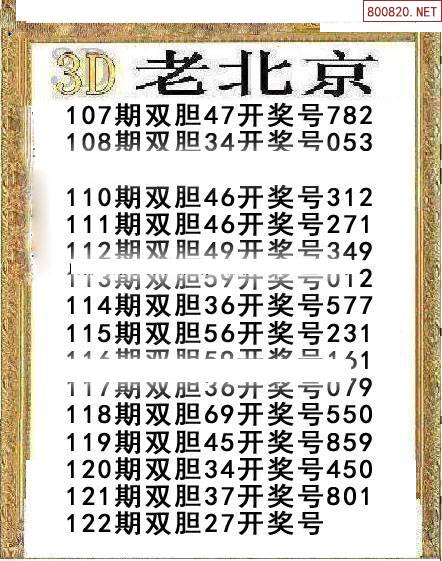 800820.NET
3D 老北京
107期双胆47开奖号782
108期双胆34开奖号053
110期双胆46开奖号312
111期双胆46开奖号271
112期双胆49开奖号349
113期双胆59开奖号012
114期双胆36开奖号577
115期双胆56开奖号231
116期双胆59开奖号161
117期双胆36开奖号079
118期双胆69开奖号550
119期双胆45开奖号859
120期双胆34开奖号450
121期双胆37开奖号801
122期双胆27开奖号